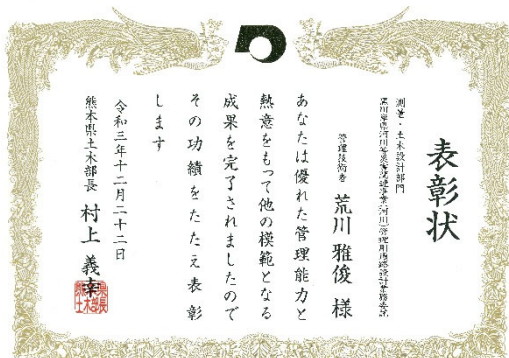 表彰状
測量・土木設計部門
管理技術者 荒川 雅俊 様
あなたは優れた管理能力と
熱意をもって他の模範となる
成果を完了されましたので
その功績をたたえ表彰
します
令和三年十二月二十二日
熊本県土木部長 村上 義幸